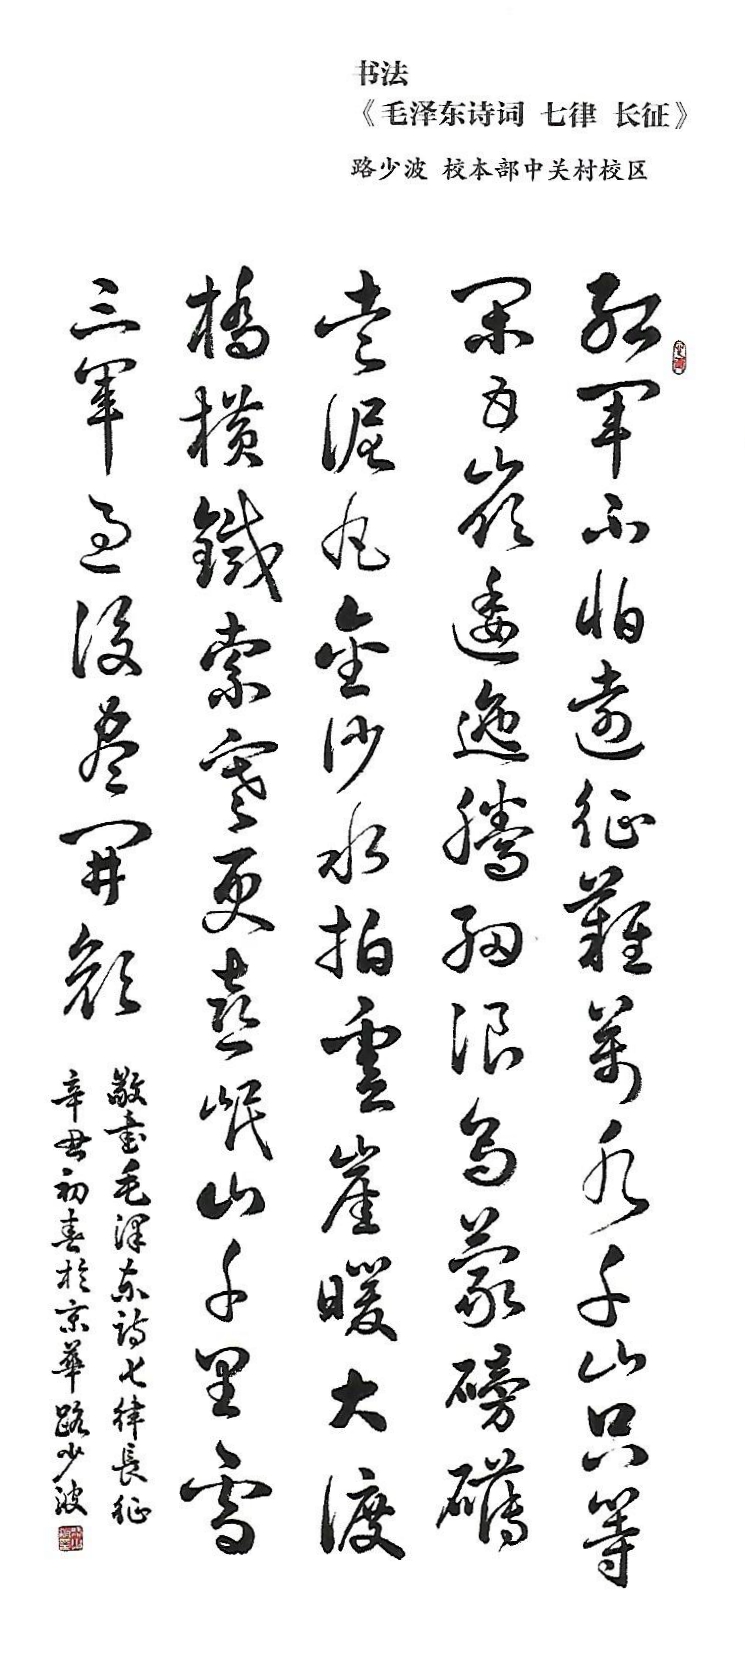 书法
《毛泽东诗词 七律 长征》
路少波 校本部中关村校区
紅軍不怕遠征難萬水千山只等
閑五嶺逶迤騰細浪烏蒙磅礴
走泥丸金沙水拍雲崖暖大渡
橋橫鐵索寒更喜岷山千里雪
三軍過後盡開顏
敬書毛澤東詩七律長征
辛丑初春於京華路少波